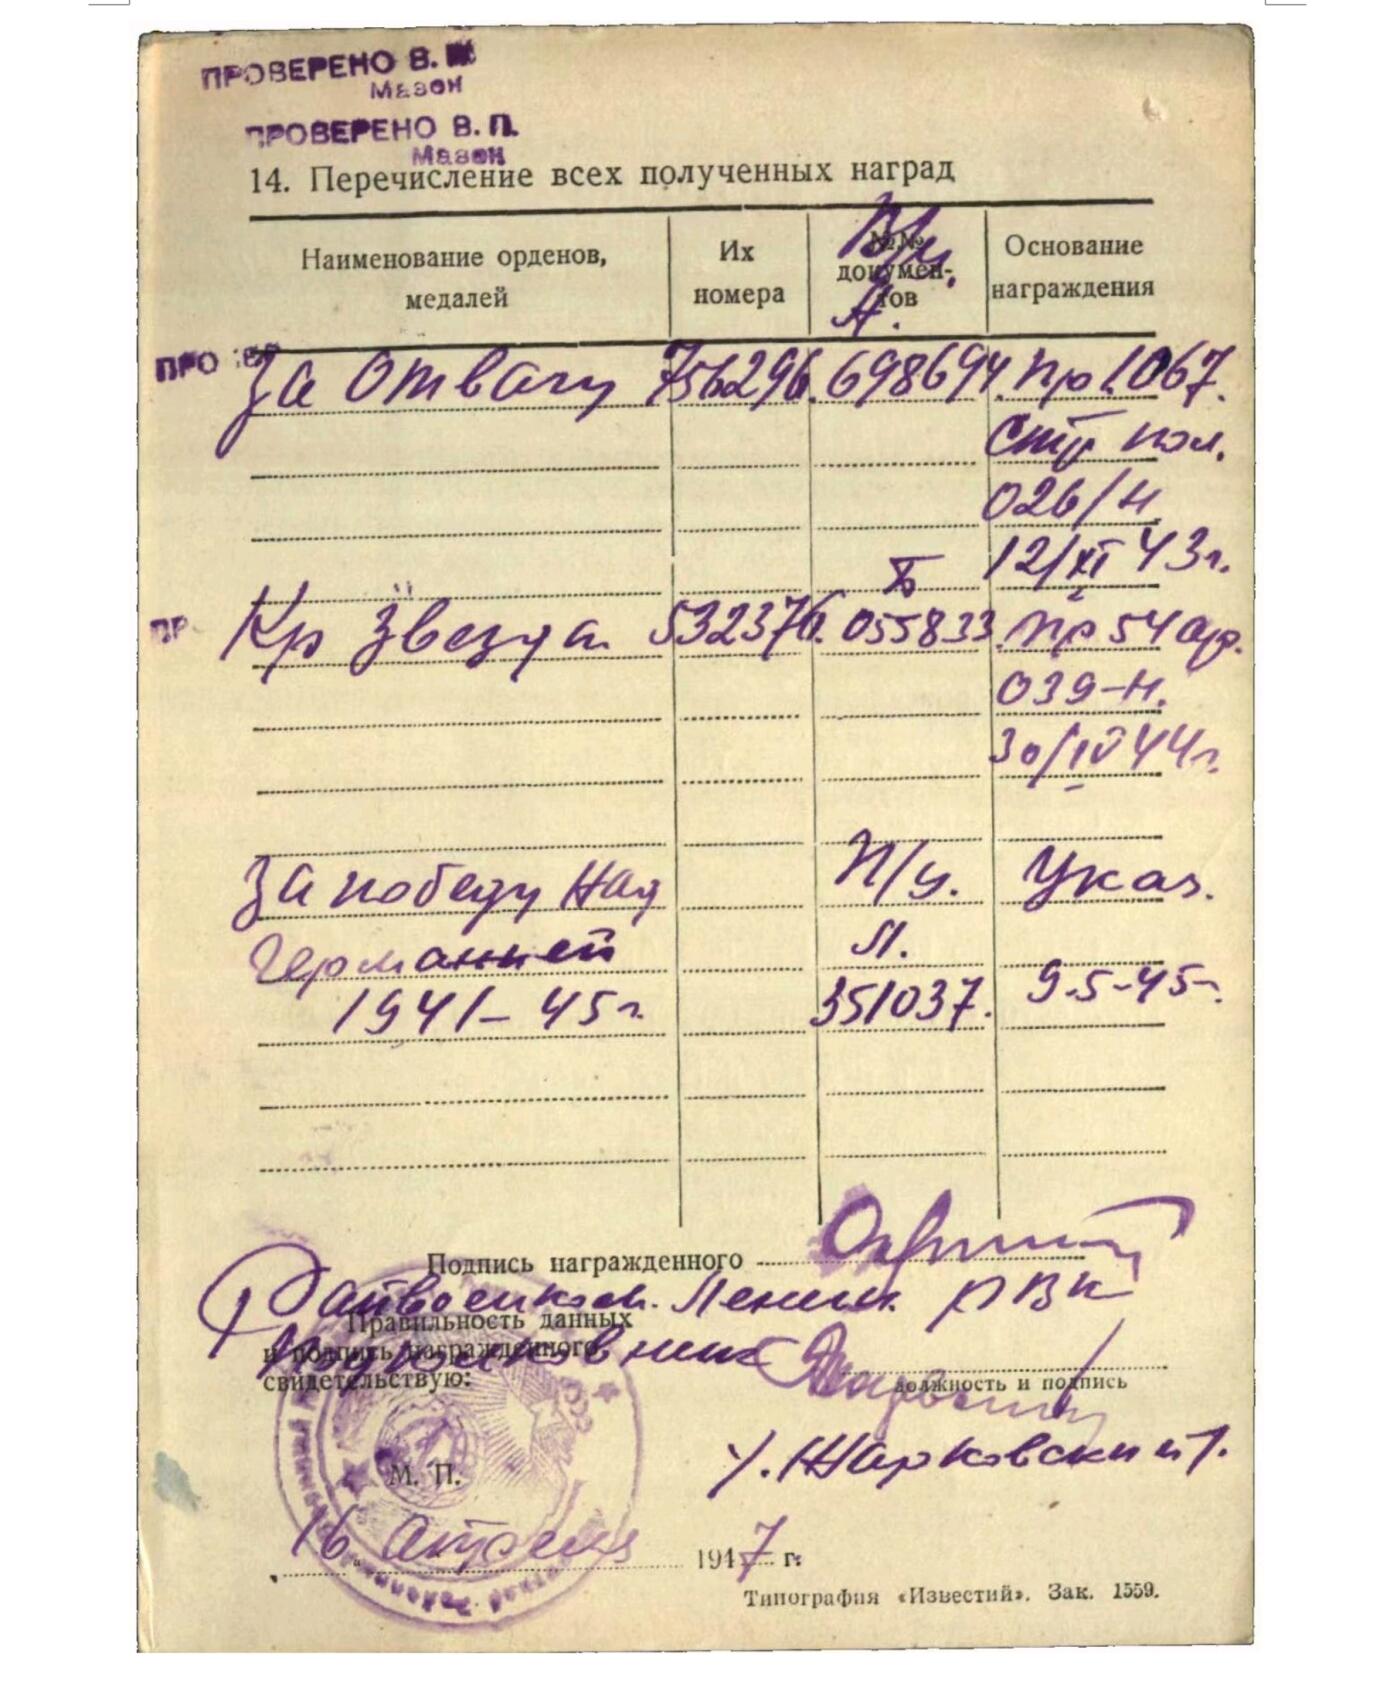 ПРОВЕРЕНО В.
Мазон
ПРОВЕРЕНО В. П.
Мазон
14. Перечисление всех полученных наград
Наименование орденов, медалей
Их номера
№№ документов
Основание награждения
В/у.
А.
ПРО
За отвагу 756296. 698694. Пр 1067.
стр пол.
026/н
12/XI 43г.
Б
ПР
Кр Звезда 532376. 055833. Пр 54 ар.
039-н.
30/IV 44г.
За победу над П/у. Указ.
Германией Л.
1941-45г. 351037. 9.5-45г.
Подпись награжденного
Райвоенком. Ленин. РВК
Правильность данных
и подпись награжденного
свидетельствую:
Подполковник
должность и подпись
/.Жарковский/.
М. П.
16 Апреля 1947 г.
Типография «Известий». Зак. 1559.